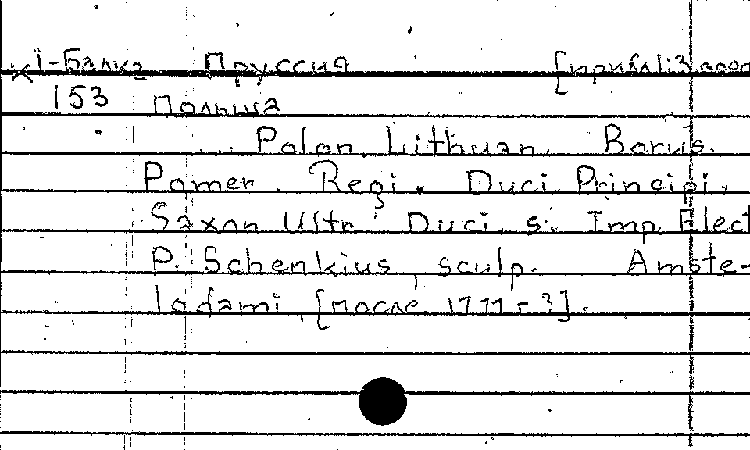 I-Балка Пруссия
153 Польша
Polon. Lithuan. Borus.
Pomer. Regi. Duci Principi.
Saxon Ultr. Duci. S. Imp. Elect
P. Schenkius sculp. Amste-
lodami, [после 1711 г.?].